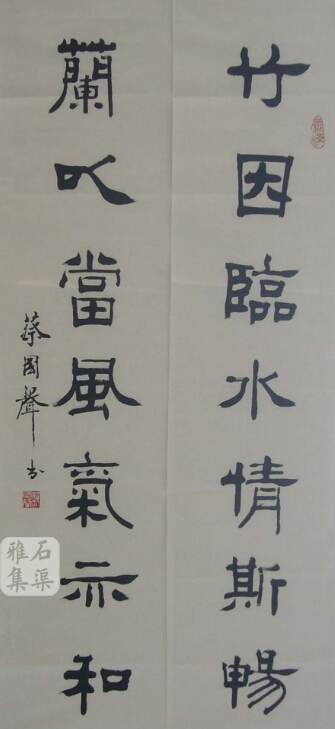 竹因臨水情斯暢
蘭以當風氣亦和
蔡國聲书
石渠
雅集